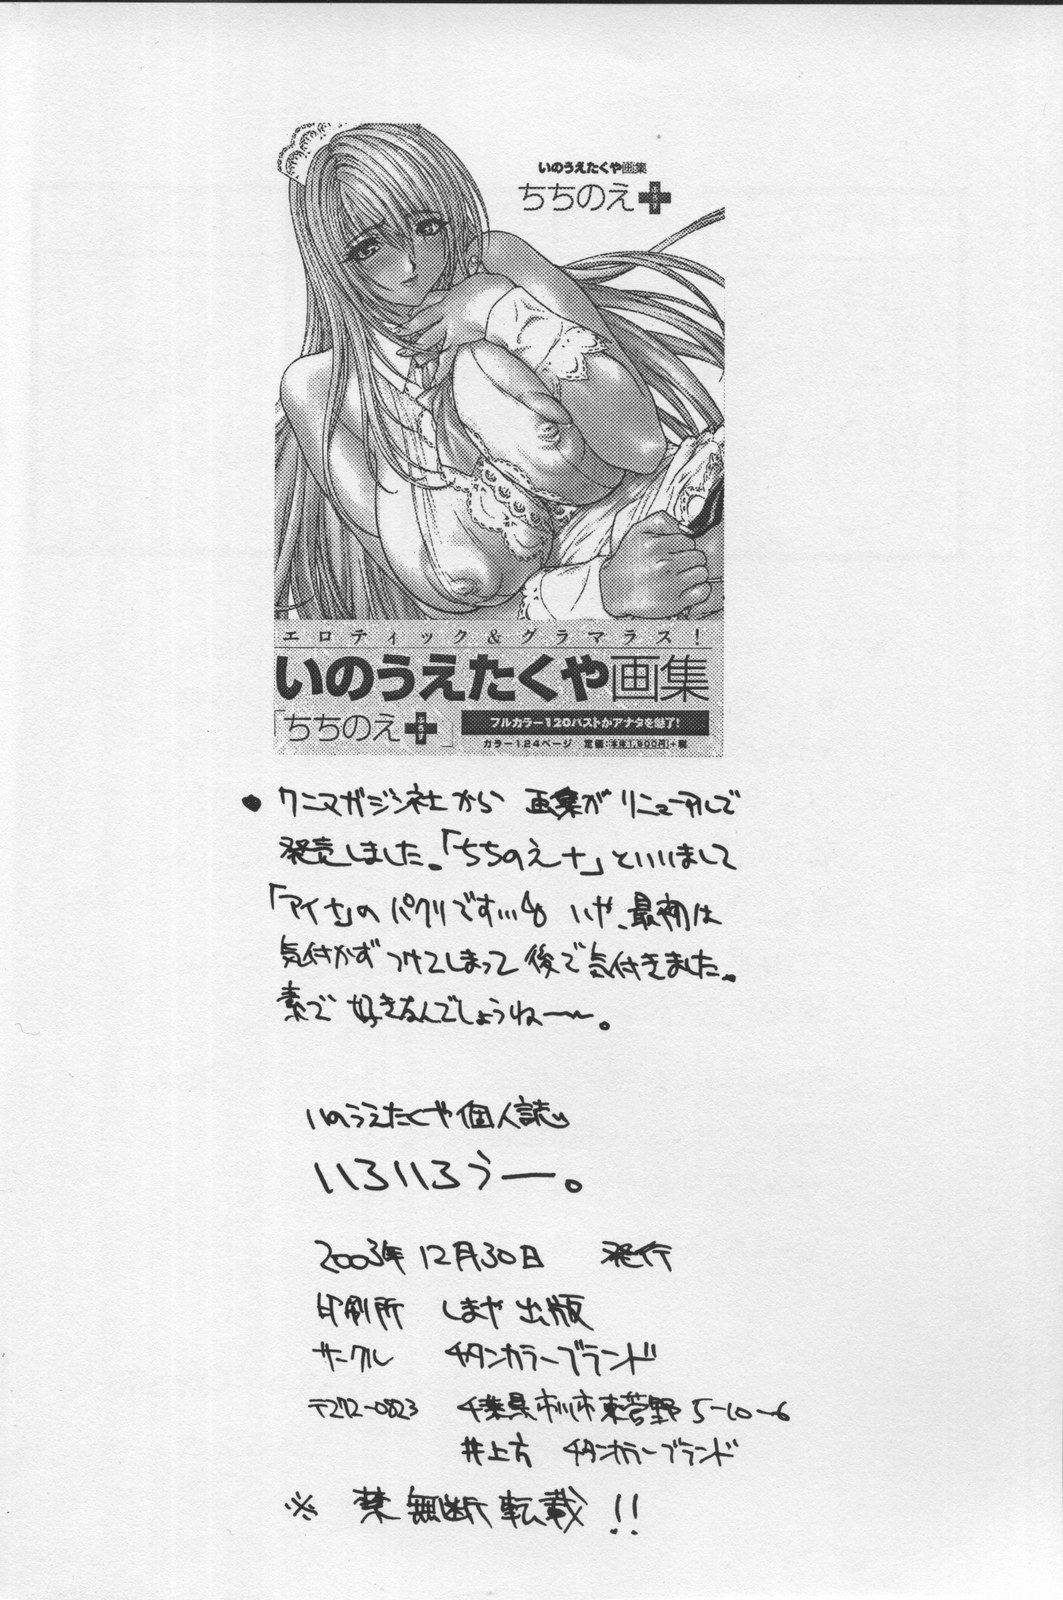 いのうえたくや画集
ちちのえ
ぷらす
エロティック&グラマラス!
いのうえたくや画集
「ちちのえ ぷらす」
フルカラー120バストがアナタを魅了!
カラー124ページ 定価:本体1,900円+税
● ワニマガジン社から 画集がリニューアルで
発売しました。「ちちのえ+」といいまして
「アイナ」のパクリです… いや、最初は
気付かずつけてしまって後で気付きました。
素で 好きなんでしょうね〜〜。
いのうえたくや個人誌
いろいろうー。
2003年12月30日 発行
印刷所 しまや出版
サークル チタンカラーブランド
〒272-0823 千葉県市川市東菅野5-10-6
井上方 チタンカラーブランド
※ 禁無断転載!!